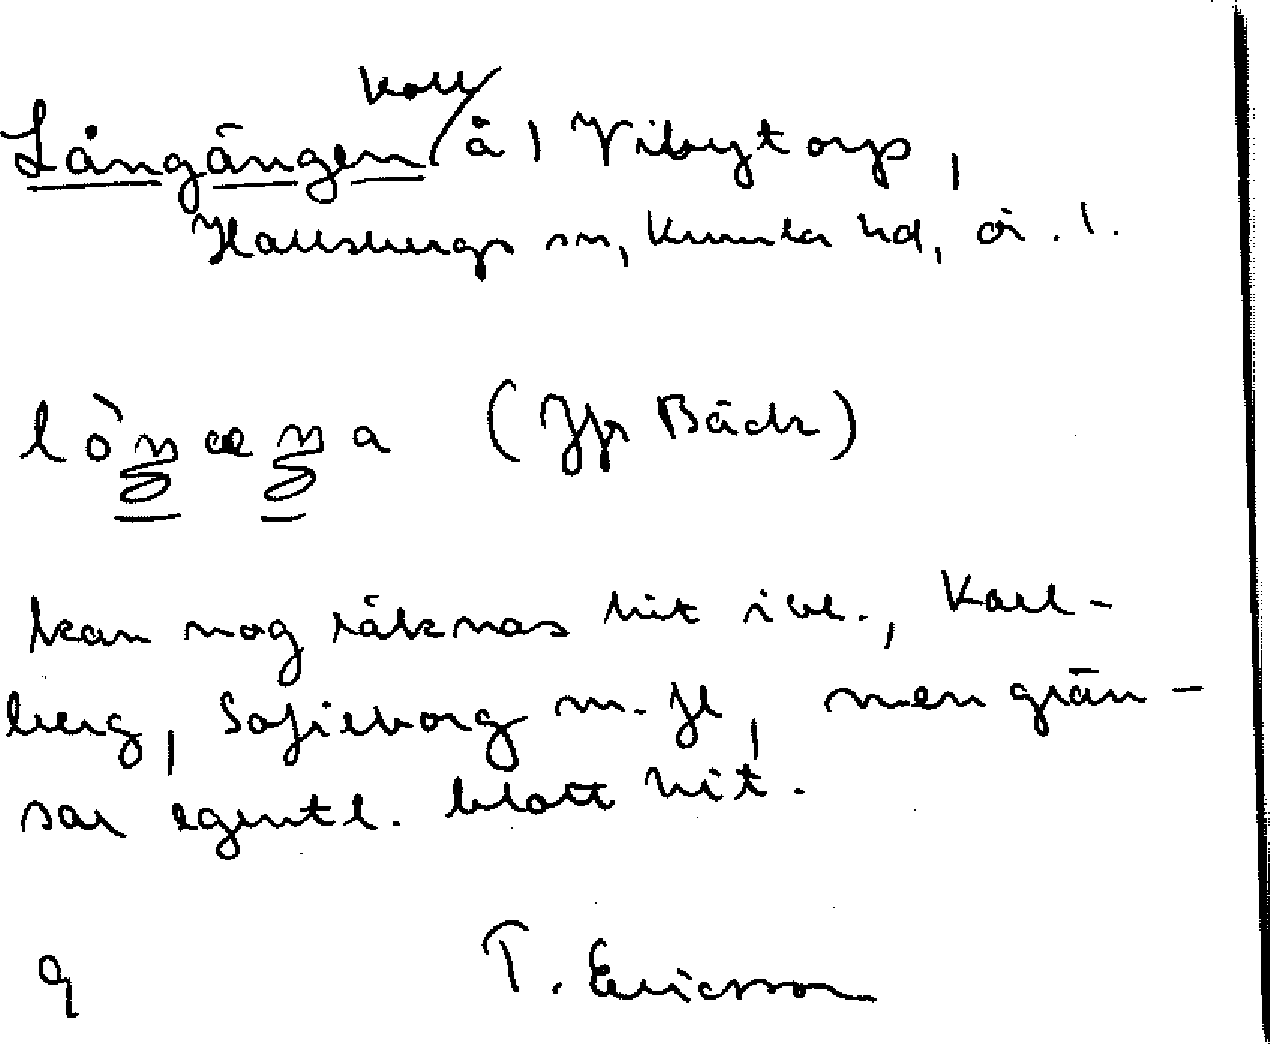 koll
Långängen / å 1 Vibytorp,
Hallsbergs sn, Kumla hd, ör. l.
lò ŋ æ ŋ a (Jfr Bäck)
kan nog räknas hit ibl., Karl-
berg, Sofieborg m. fl, men grän-
sar egentl. blott hit.
9 T. Ericsson